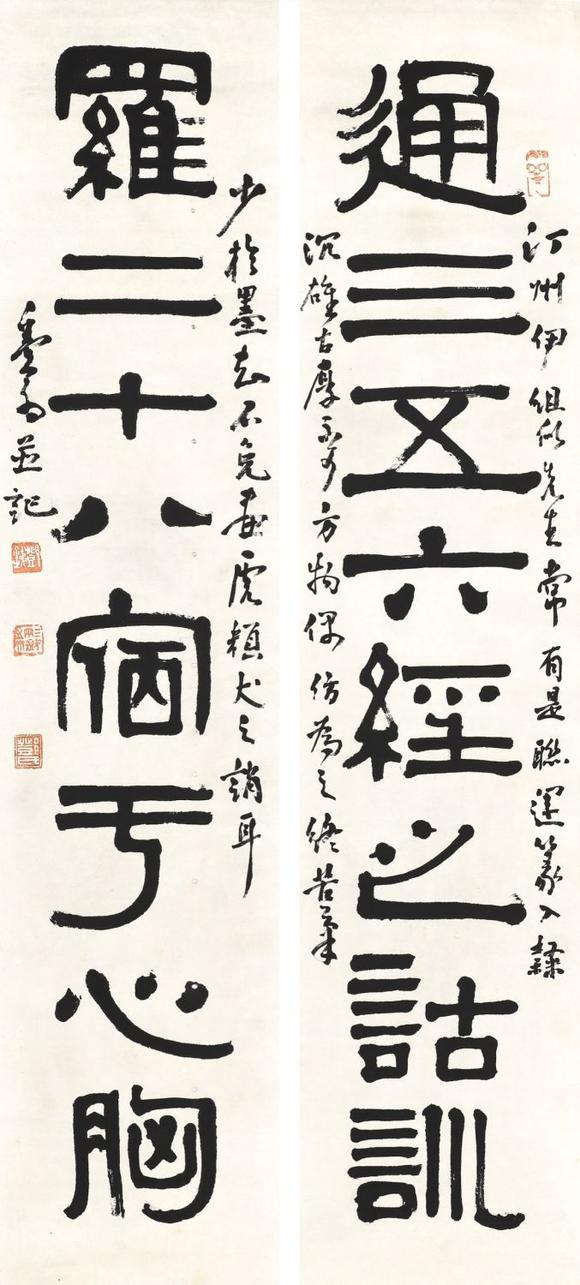 汀州伊組似先生常有是聯運篆入隸
通三五六經之詁訓
沉雄古厚不可方物偶仿為之終苦筆
少於墨不免畫虎類犬之誚耳
羅二十八宿于心胸
並記